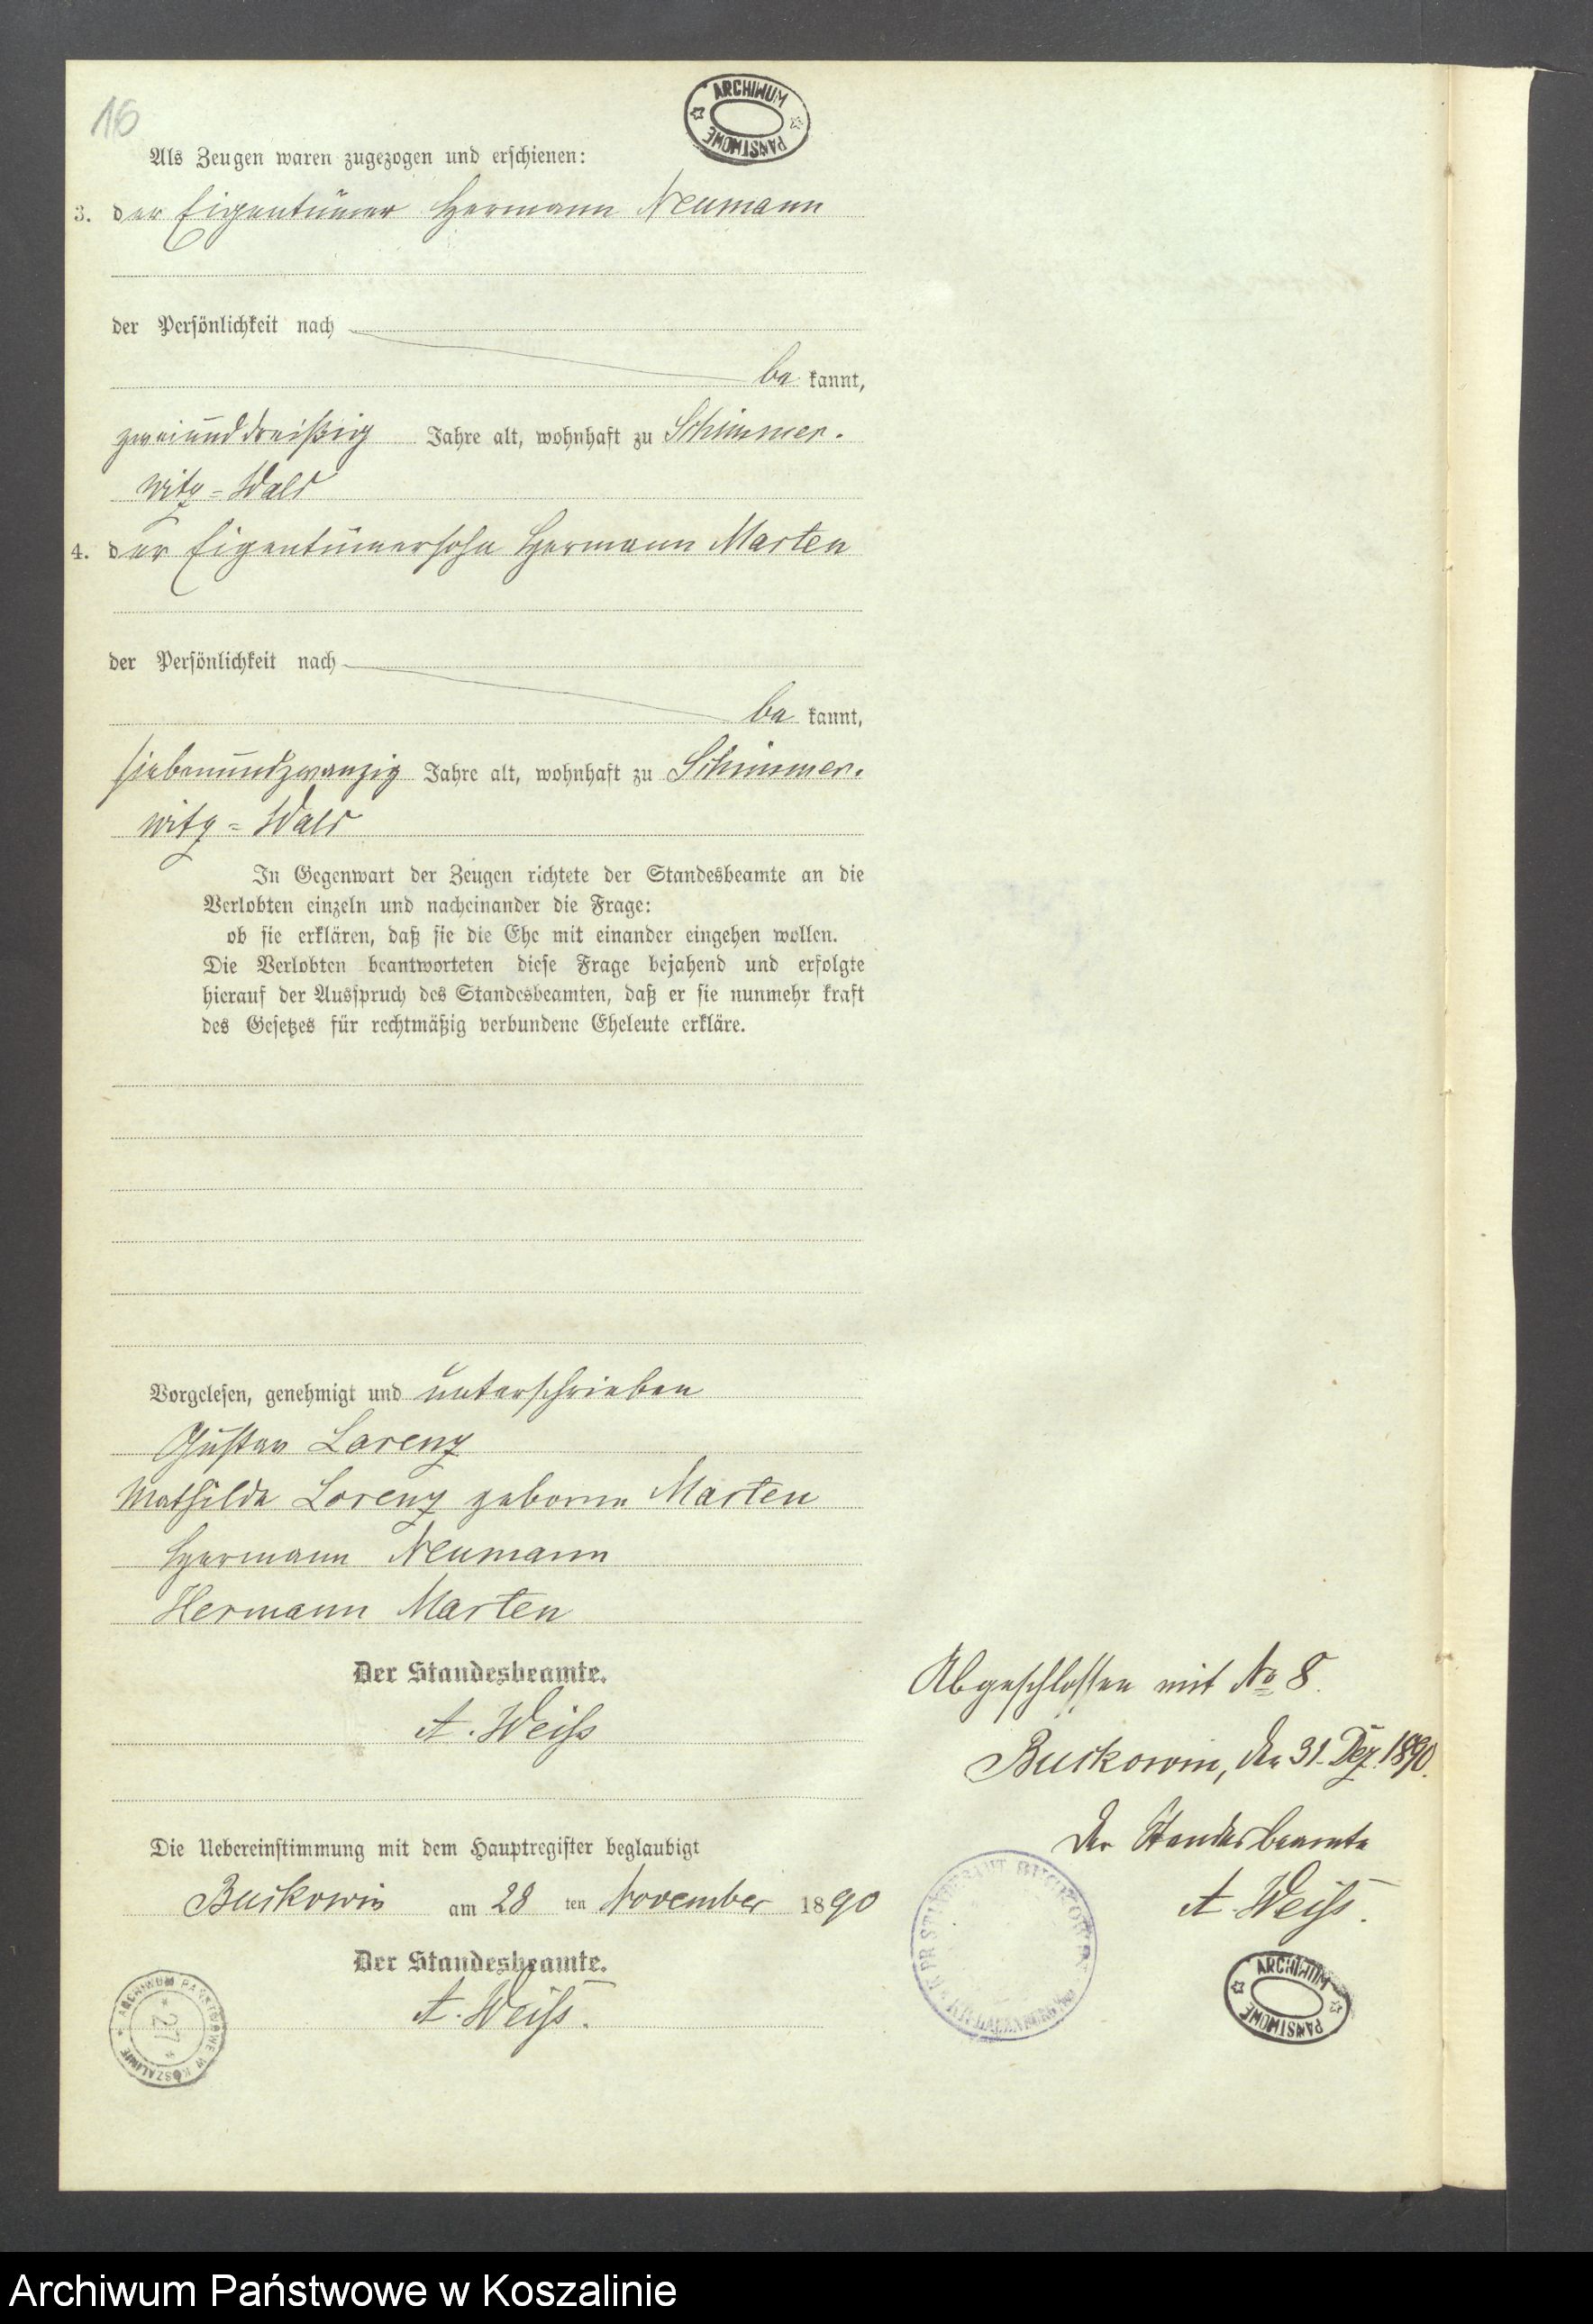 16
ARCHIWUM PAŃSTWOWE
Als Zeugen waren zugezogen und erschienen:
3. der Eigentümer Hermann Neumann
der Persönlichkeit nach
be kannt,
zweiunddreißig Jahre alt, wohnhaft zu Schimmer-
witz-Wald
4. der Eigentümersohn Hermann Marten
der Persönlichkeit nach
be kannt,
siebenundzwanzig Jahre alt, wohnhaft zu Schimmer-
witz-Wald
In Gegenwart der Zeugen richtete der Standesbeamte an die
Verlobten einzeln und nacheinander die Frage:
ob sie erklären, daß sie die Ehe mit einander eingehen wollen.
Die Verlobten beantworteten diese Frage bejahend und erfolgte
hierauf der Ausspruch des Standesbeamten, daß er sie nunmehr kraft
des Gesetzes für rechtmäßig verbundene Eheleute erkläre.
Vorgelesen, genehmigt und unterschrieben
Gustav Lorenz
Mathilde Lorenz geborne Marten
Hermann Neumann
Hermann Marten
Der Standesbeamte.
A. Weiss
Die Uebereinstimmung mit dem Hauptregister beglaubigt
Buckowin am 28 ten November 1890
Der Standesbeamte.
A. Weiss.
ARCHIWUM PAŃSTWOWE W KOSZALINIE
27
Abgeschlossen mit No 8.
Buckowin, den 31. Dez. 1890.
Der Standesbeamte
A. Weiss.
K. PR. STANDESAMT BUCKOWIN
KR. LAUENBURG
ARCHIWUM PAŃSTWOWE
Archiwum Państwowe w Koszalinie